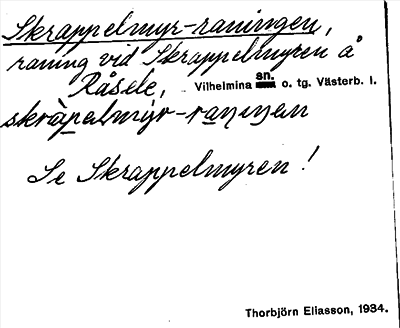 Skrappelmyr-raningen,
raning vid Skrappelmyren å
Råsele, Vilhelmina sn. o. tg. Västerb. l.
skràpelmyr-raniṇen
Se Skrappelmyren!
Thorbjörn Eliasson, 1934.